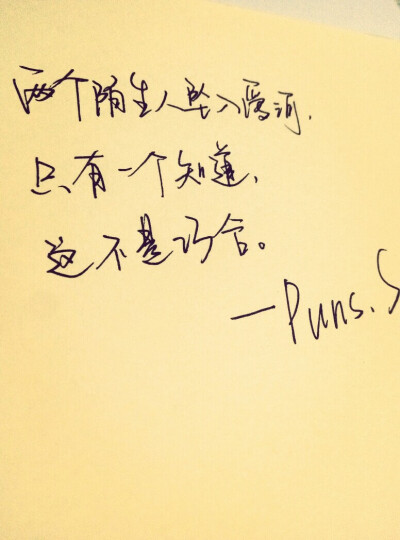 两个陌生人坠入爱河，
只有一个知道，
这不是巧合。
—Puns.S